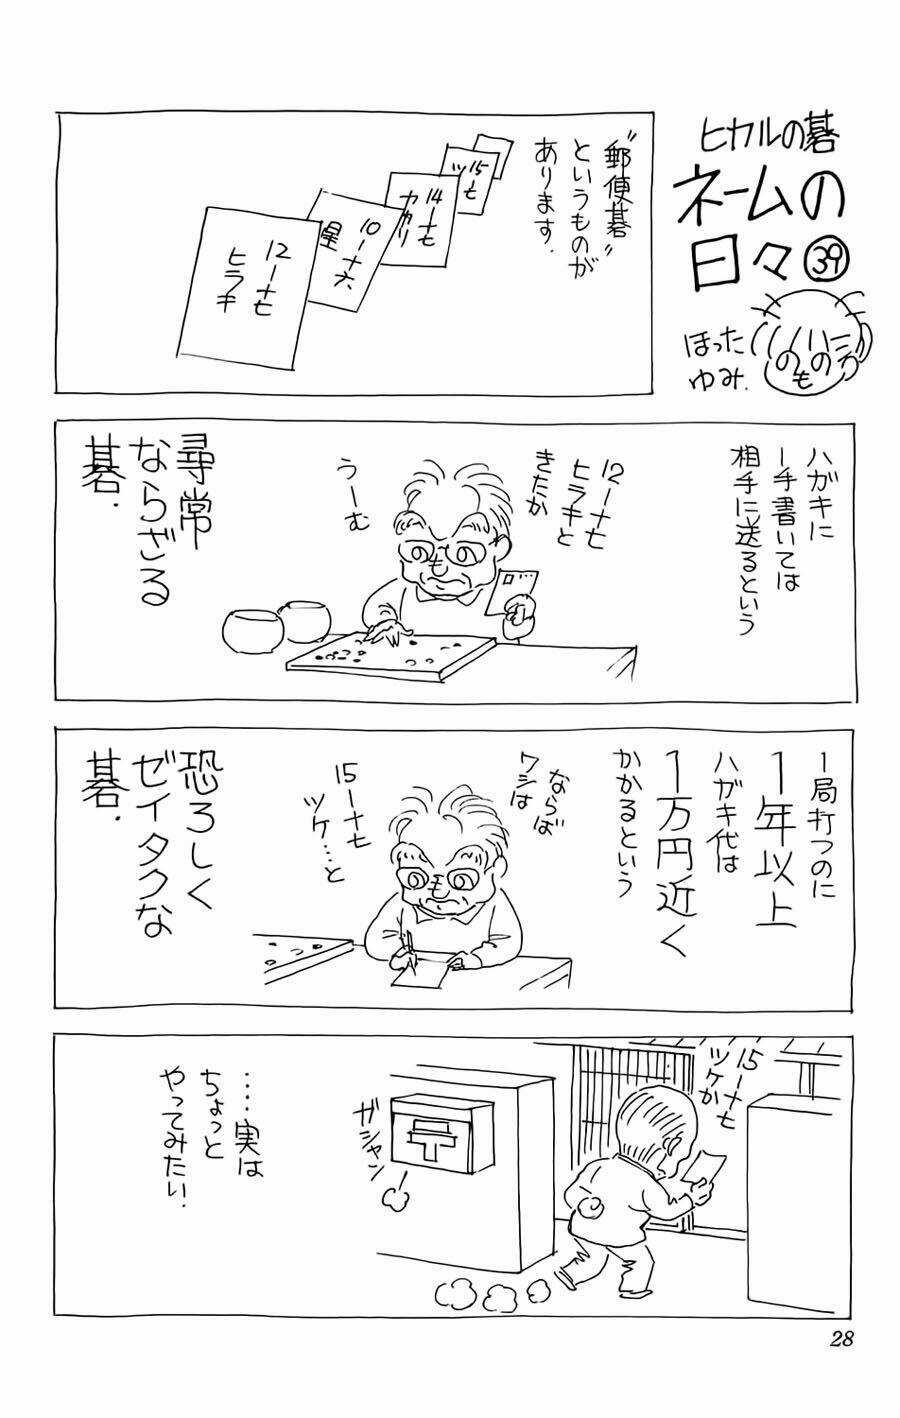 ヒカルの碁
ネームの
日々㊴
ほった
ゆみ.
へのへのもへ
"郵便碁"
というものが
あります.
15一七
ツ
14一七
カカリ
10一十六
星
12一十七
ヒラキ
ハガキに
一手書いては
相手に送るという
12一十七
ヒラキと
きたか
うーむ
尋常
ならざる
碁.
一局打つのに
1年以上
ハガキ代は
1万円近く
かかるという
ならば
ワシは
15一十七
ツケ…と
恐ろしく
ゼイタクな
碁.
15一十七
ツケか
ガシャン
……実は
ちょっと
やってみたい.
28